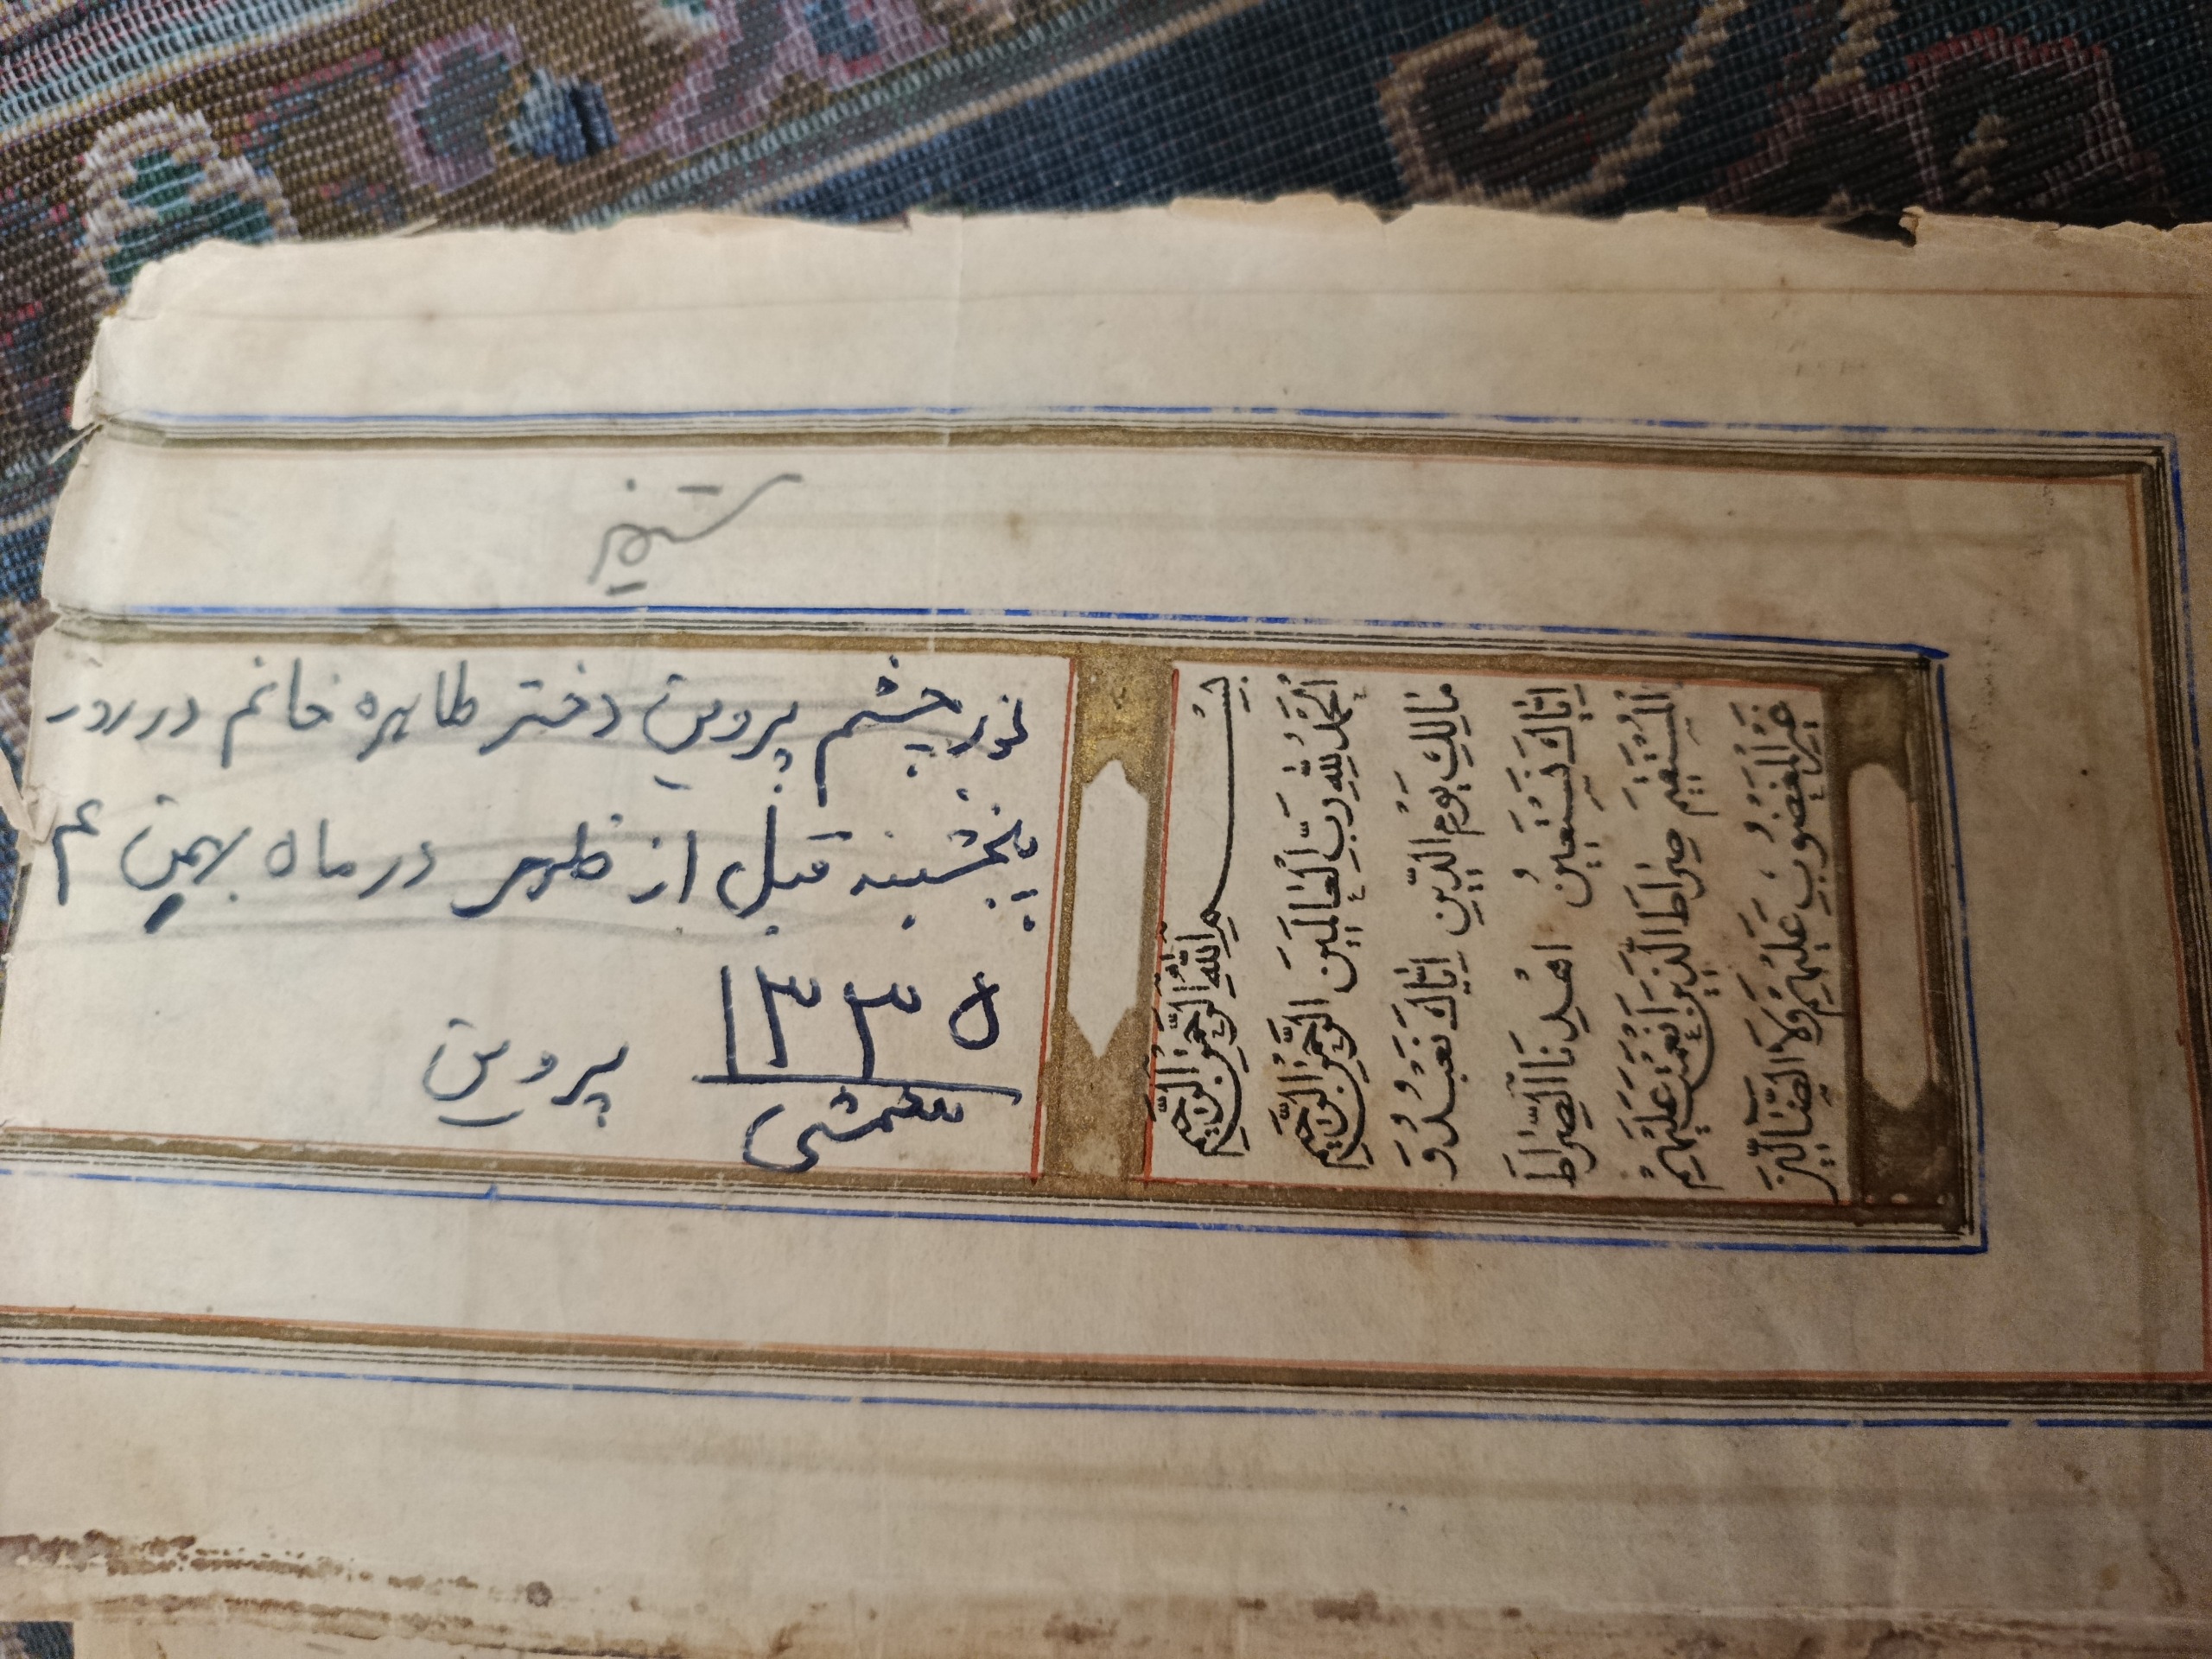 نور چشم پروین دختر طاهره خانم در روز
پنجشنبه قبل از ظهر در ماه بهمن
۱۳۳۵
شمسی
پروین
بِسْمِ اللهِ الرَّحْمٰنِ الرَّحِيمِ
اَلْحَمْدُ لِلّٰهِ رَبِّ الْعٰالَمِينَ الرَّحْمٰنِ الرَّحِيمِ
مٰالِكِ يَوْمِ الدِّينِ اِيّٰاكَ نَعْبُدُ وَ
اِيّٰاكَ نَسْتَعِينُ اهْدِنَا الصِّرٰاطَ
الْمُسْتَقِيمَ صِرٰاطَ الَّذِينَ اَنْعَمْتَ عَلَيْهِمْ
غَيْرِ الْمَغْضُوبِ عَلَيْهِمْ وَلَا الضّٰالِّينَ